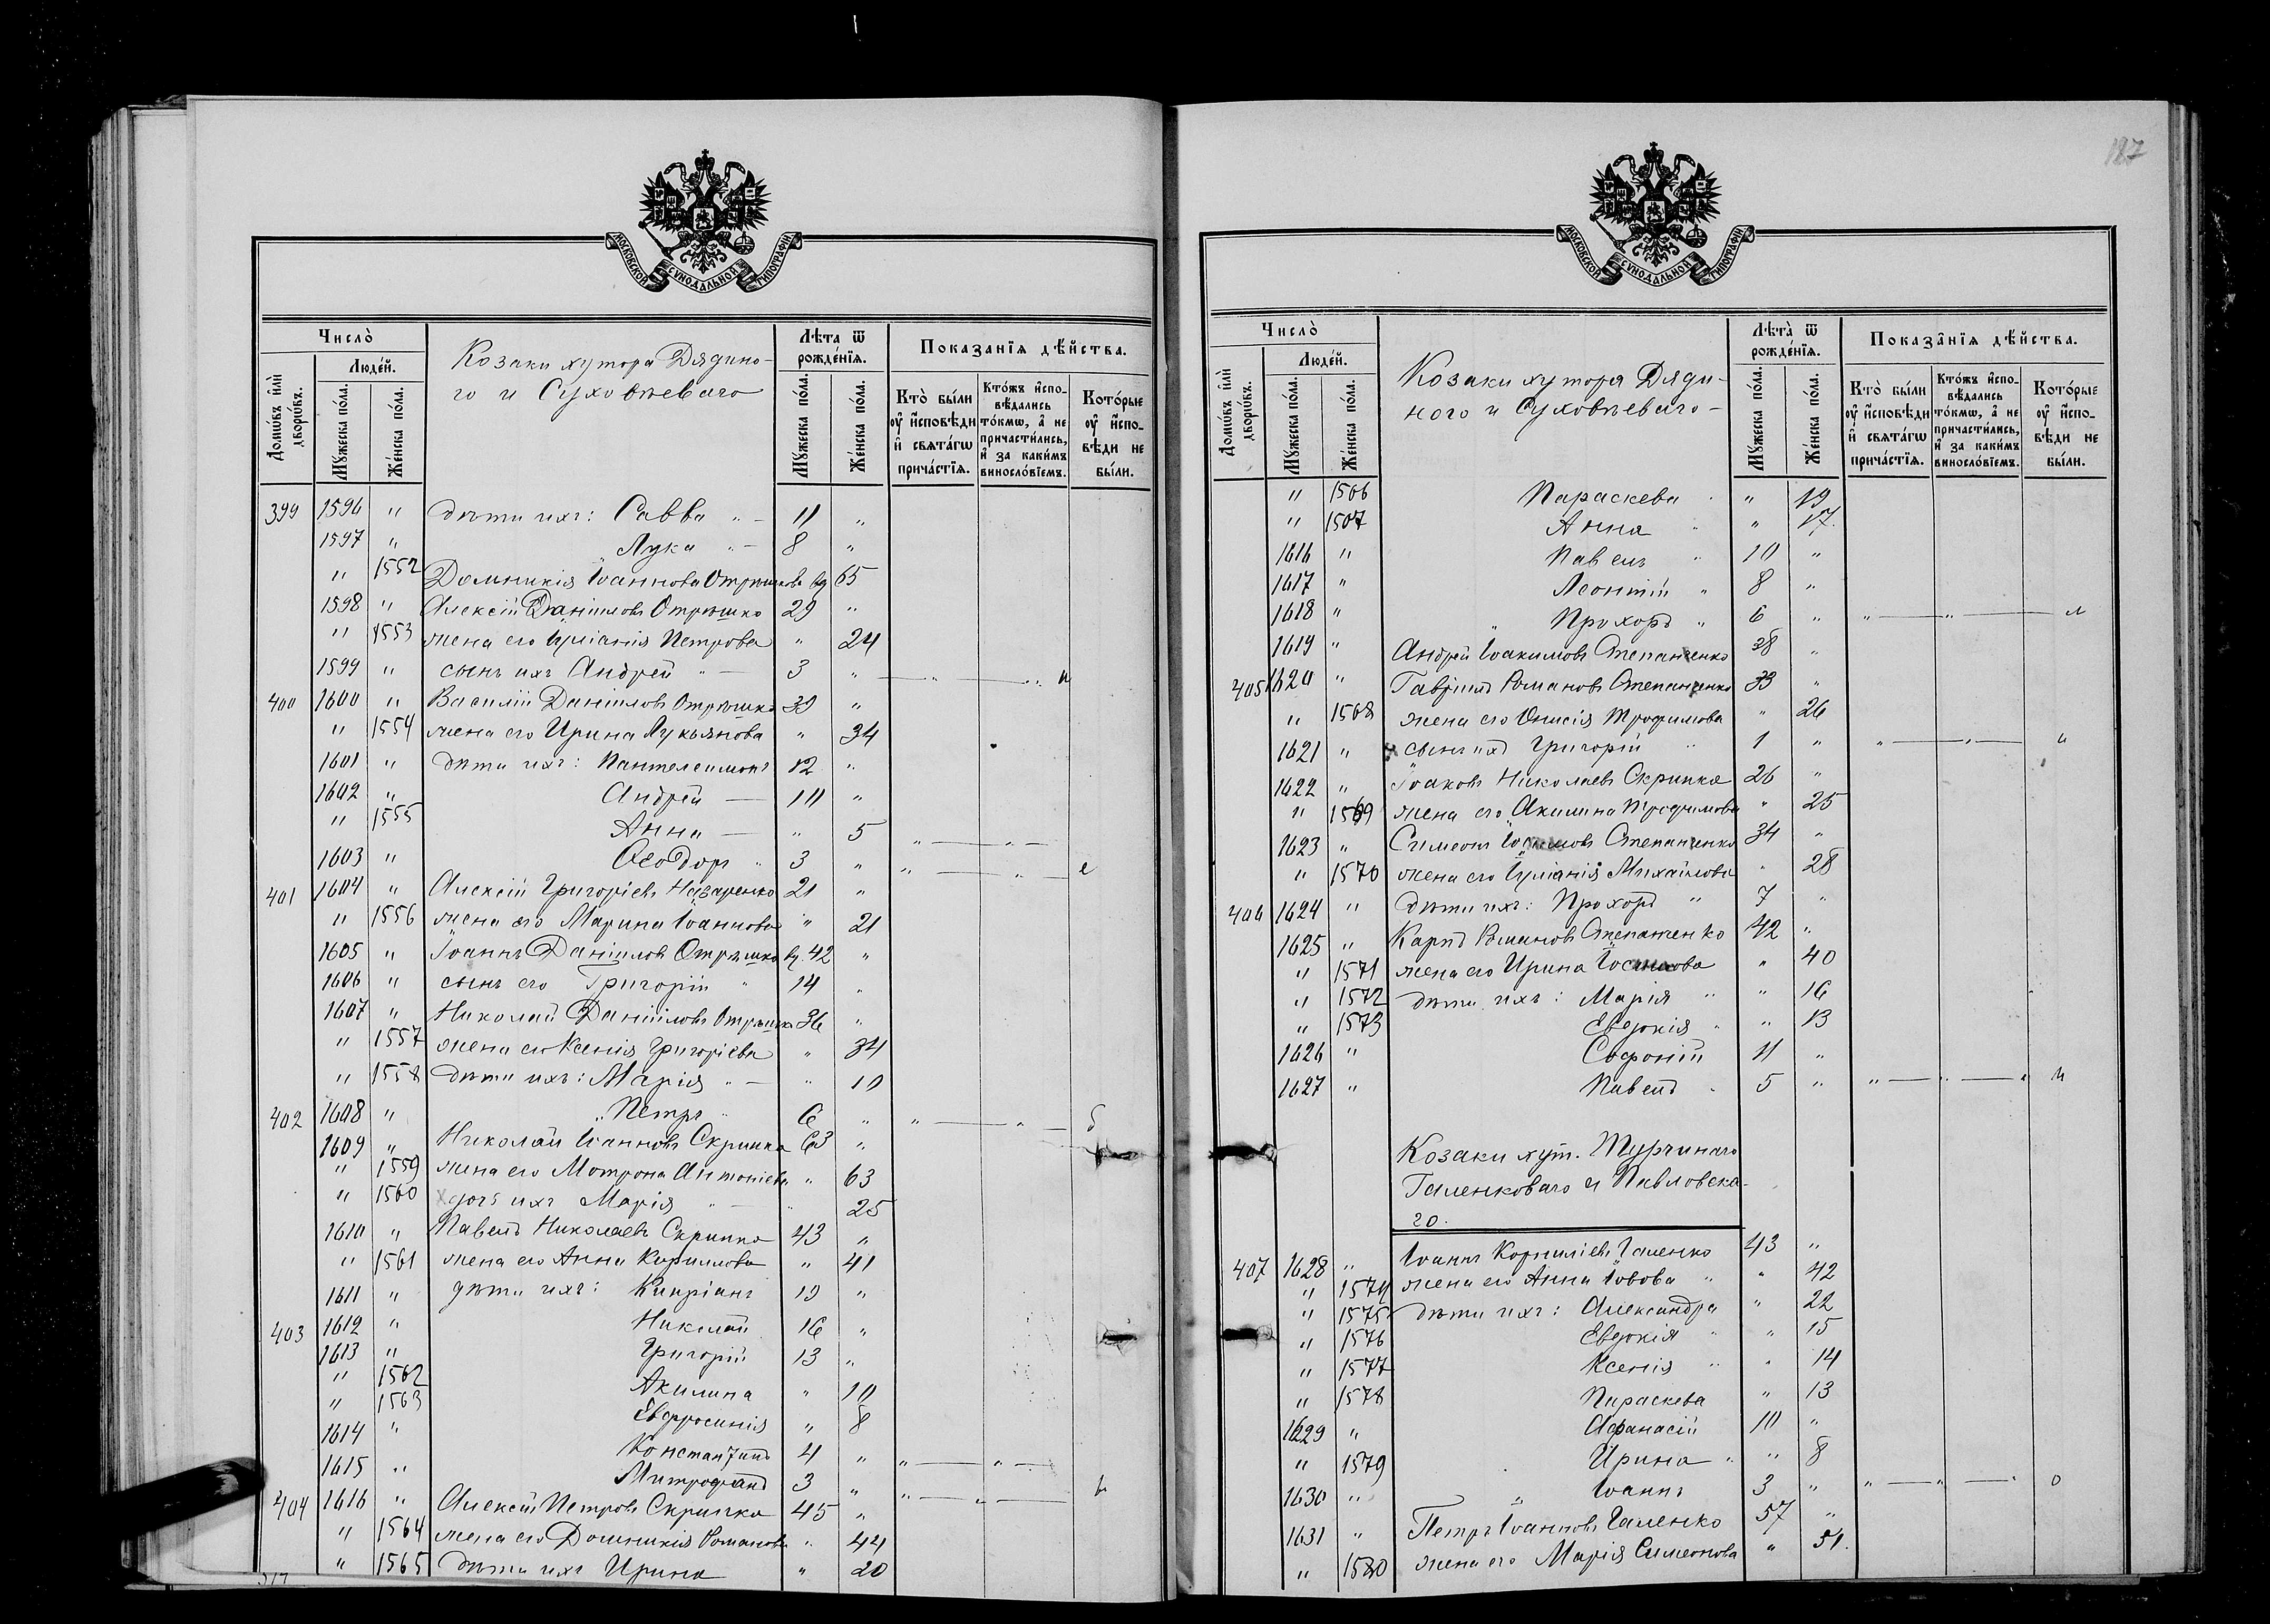 187
МОСКОВСКОЙ СѴНОДАЛЬНОЙ ТИПОГРАФІИ
Число̀
Люде́й.
Домѡ́въ и҆лѝ дворѡ́въ.
Мꙋ́жеска по́ла.
Же́нска по́ла.
Козаки хутора Дядино-
го и Суховѣеваго
Лѣ́та ѿ рожде́нїѧ.
Мꙋ́жеска по́ла.
Же́нска по́ла.
Показа̑нїѧ дѣ́йства.
Кто̀ бы́ли оу҆ и҆́сповѣди и҆ свѧта́гѡ прича́стїѧ.
Кто́жъ и҆спо-вѣ́дались то́кмѡ, а҆ не причасти́лись, и҆ за каки́мъ винослⷪ҇вїемъ.
Кото́рые оу҆ и҆́спо-вѣди не бы́ли.
399 1596 " дѣти ихъ: Савва " — 11 "
1597 " Лука " — 8 "
" 1552 Домникія Іоаннова Отрѣшкова вд 65
1598 " Алексій Даніиловъ Отрѣшко 29 "
" 1553 жена его Іуліанія Петрова " 24
1599 " сынъ ихъ Андрей " — 3 "
400 1600 " Василій Даніиловъ Отрѣшко 39 "
" 1554 жена его Ирина Лукьянова " 34
1601 " дѣти ихъ: Пантелеимонъ 12 "
1602 " Андрей — 10 "
" 1555 Анна — " 5
1603 " Ѳеодоръ " 3 "
401 1604 " Алексій Григоріевъ Назаренко 21 "
" 1556 жена его Марина Іоаннова " 21
1605 " Іоаннъ Даніиловъ Отрѣшко в. 42 "
1606 " сынъ его Григорій " 14 "
1607 " Николай Даніиловъ Отрѣшко 36 "
" 1557 жена его Ксенія Григоріева " 34
" 1558 дѣти ихъ: Марія " — " 10
402 1608 " Петръ " 6 "
1609 " Николай Іоанновъ Скрипка 63 "
" 1559 жена его Мотрона Антоніева " 63
" 1560 дочь ихъ Марія " — " 25
1610 " Павелъ Николаевъ Скрипка 43 "
" 1561 жена его Анна Кириллова " 41
1611 " дѣти ихъ: Кипріанъ 19 "
403 1612 " Николай 16 "
1613 " Григорій 13 "
" 1562 Акилина " 10
" 1563 Евфросинія " 8
1614 " Константинъ 4 "
1615 " Митрофанъ 3 "
404 1616 " Алексій Петровъ Скрипка 45 "
" 1564 жена его Домникія Романова " 44
" 1565 дѣти ихъ Ирина " 20
МОСКОВСКОЙ СѴНОДАЛЬНОЙ ТИПОГРАФІИ
Число̀
Люде́й.
Домѡ́въ и҆лѝ дворѡ́въ.
Мꙋ́жеска по́ла.
Же́нска по́ла.
Козаки хутора Дяди-
ного и Суховѣеваго —
Лѣта̀ ѿ рожде́нїѧ.
Мꙋ́жеска по́ла.
Же́нска по́ла.
Показа̑нїѧ дѣ́йства.
Кто̀ бы́ли оу҆ и҆́сповѣди и҆ свѧта́гѡ прича́стїѧ.
Кто́жъ и҆спо-вѣ́дались то́кмѡ, а҆ не причасти́лись, и҆ за каки́мъ винослⷪ҇вїемъ.
Кото́рые оу҆ и҆́спо-вѣди не бы́ли.
" 1566 Параскева " 19
" 1567 Анна " 17.
1616 " Павелъ " 10 "
1617 " Леонтій " 8 "
1618 " Прохоръ " 6 "
1619 " Андрей Іоакимовъ Степаненко 38 "
405 1620 " Гавріилъ Романовъ Степаненко 33 "
" 1568 жена его Онисія Трофимова " 26
1621 " сынъ ихъ Григорій " 1 "
1622 " Іоаковъ Николаевъ Скрипка 26 "
" 1569 жена его Акилина Трофимова " 25
1623 " Симеонъ Іоакимовъ Степаненко 34 "
" 1570 жена его Іуліанія Михайлова " 28
406 1624 " Дѣти ихъ: Прохоръ " 7 "
1625 " Карпъ Романовъ Степаненко 42 "
" 1571 жена его Ирина " 40
" 1572 дѣти ихъ: Марія " " 16
" 1573 Евдокія " " 13
1626 " Софоній 11 "
1627 " Павелъ " 5 "
Козаки хут. Турчинаго
Галенковаго и Павловска-
го.
407 1628 " Іоаннъ Корниліевъ Галенко 43 "
" 1574 жена его Анна Іовова " " 42
" 1575 дѣти ихъ: Александра " 22
" 1576 Евдокія " " 15
" 1577 Ксенія " " 14
" 1578 Параскева " 13
1629 " Аѳанасій 10 "
" 1579 Ирина " " 8
1630 " Іоаннъ 3 "
1631 " Петръ Іоанновъ Галенко 57 "
" 1580 жена его Марія Симеонова " 51.